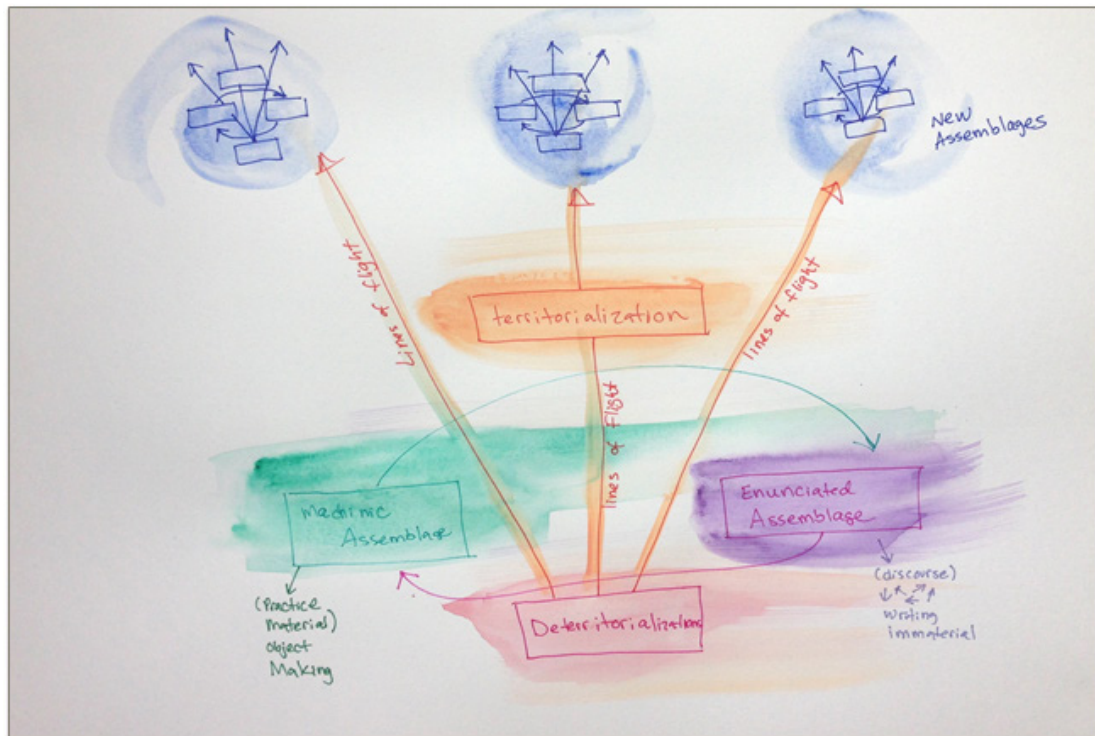 New
Assemblages
Lines of flight
lines of flight
territorialization
lines of flight
Machinic
Assemblage
Enunciated
Assemblage
(Practice
Material)
Object
Making
(discourse)
Writing
immaterial
Deterritorializations